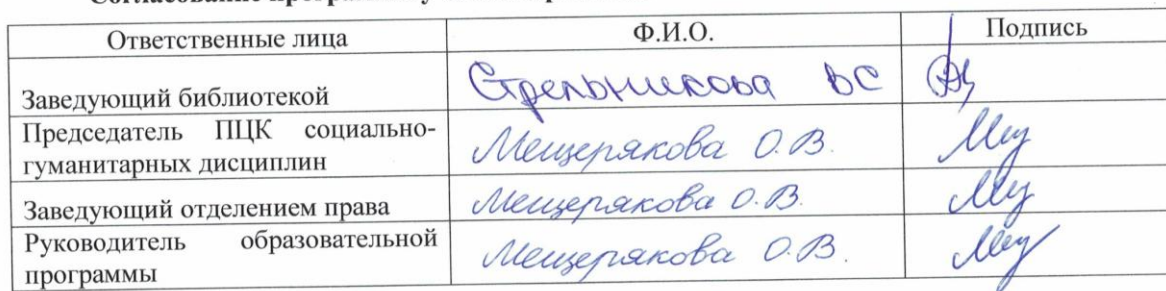 Ответственные лица Ф.И.О. Подпись
Заведующий библиотекой Стрельникова ВС
Председатель ПЦК социально-
гуманитарных дисциплин Мещерякова О.В.
Заведующий отделением права Мещерякова О.В.
Руководитель образовательной
программы Мещерякова О.В.